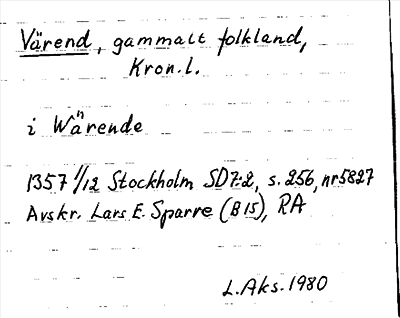 Värend, gammalt folkland,
Kron.l.
i Wärende
1357 1/12 Stockholm SD7:2, s. 256, nr 5827
Avskr. Lars E. Sparre (B 15), RA
L.Aks. 1980